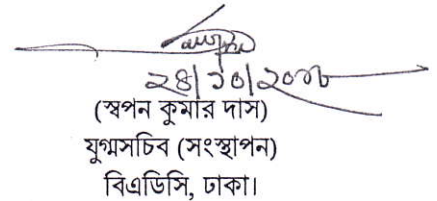 ২৪|১০|২০১৮
(স্বপন কুমার দাস)
যুগ্মসচিব (সংস্থাপন)
বিএডিসি, ঢাকা।